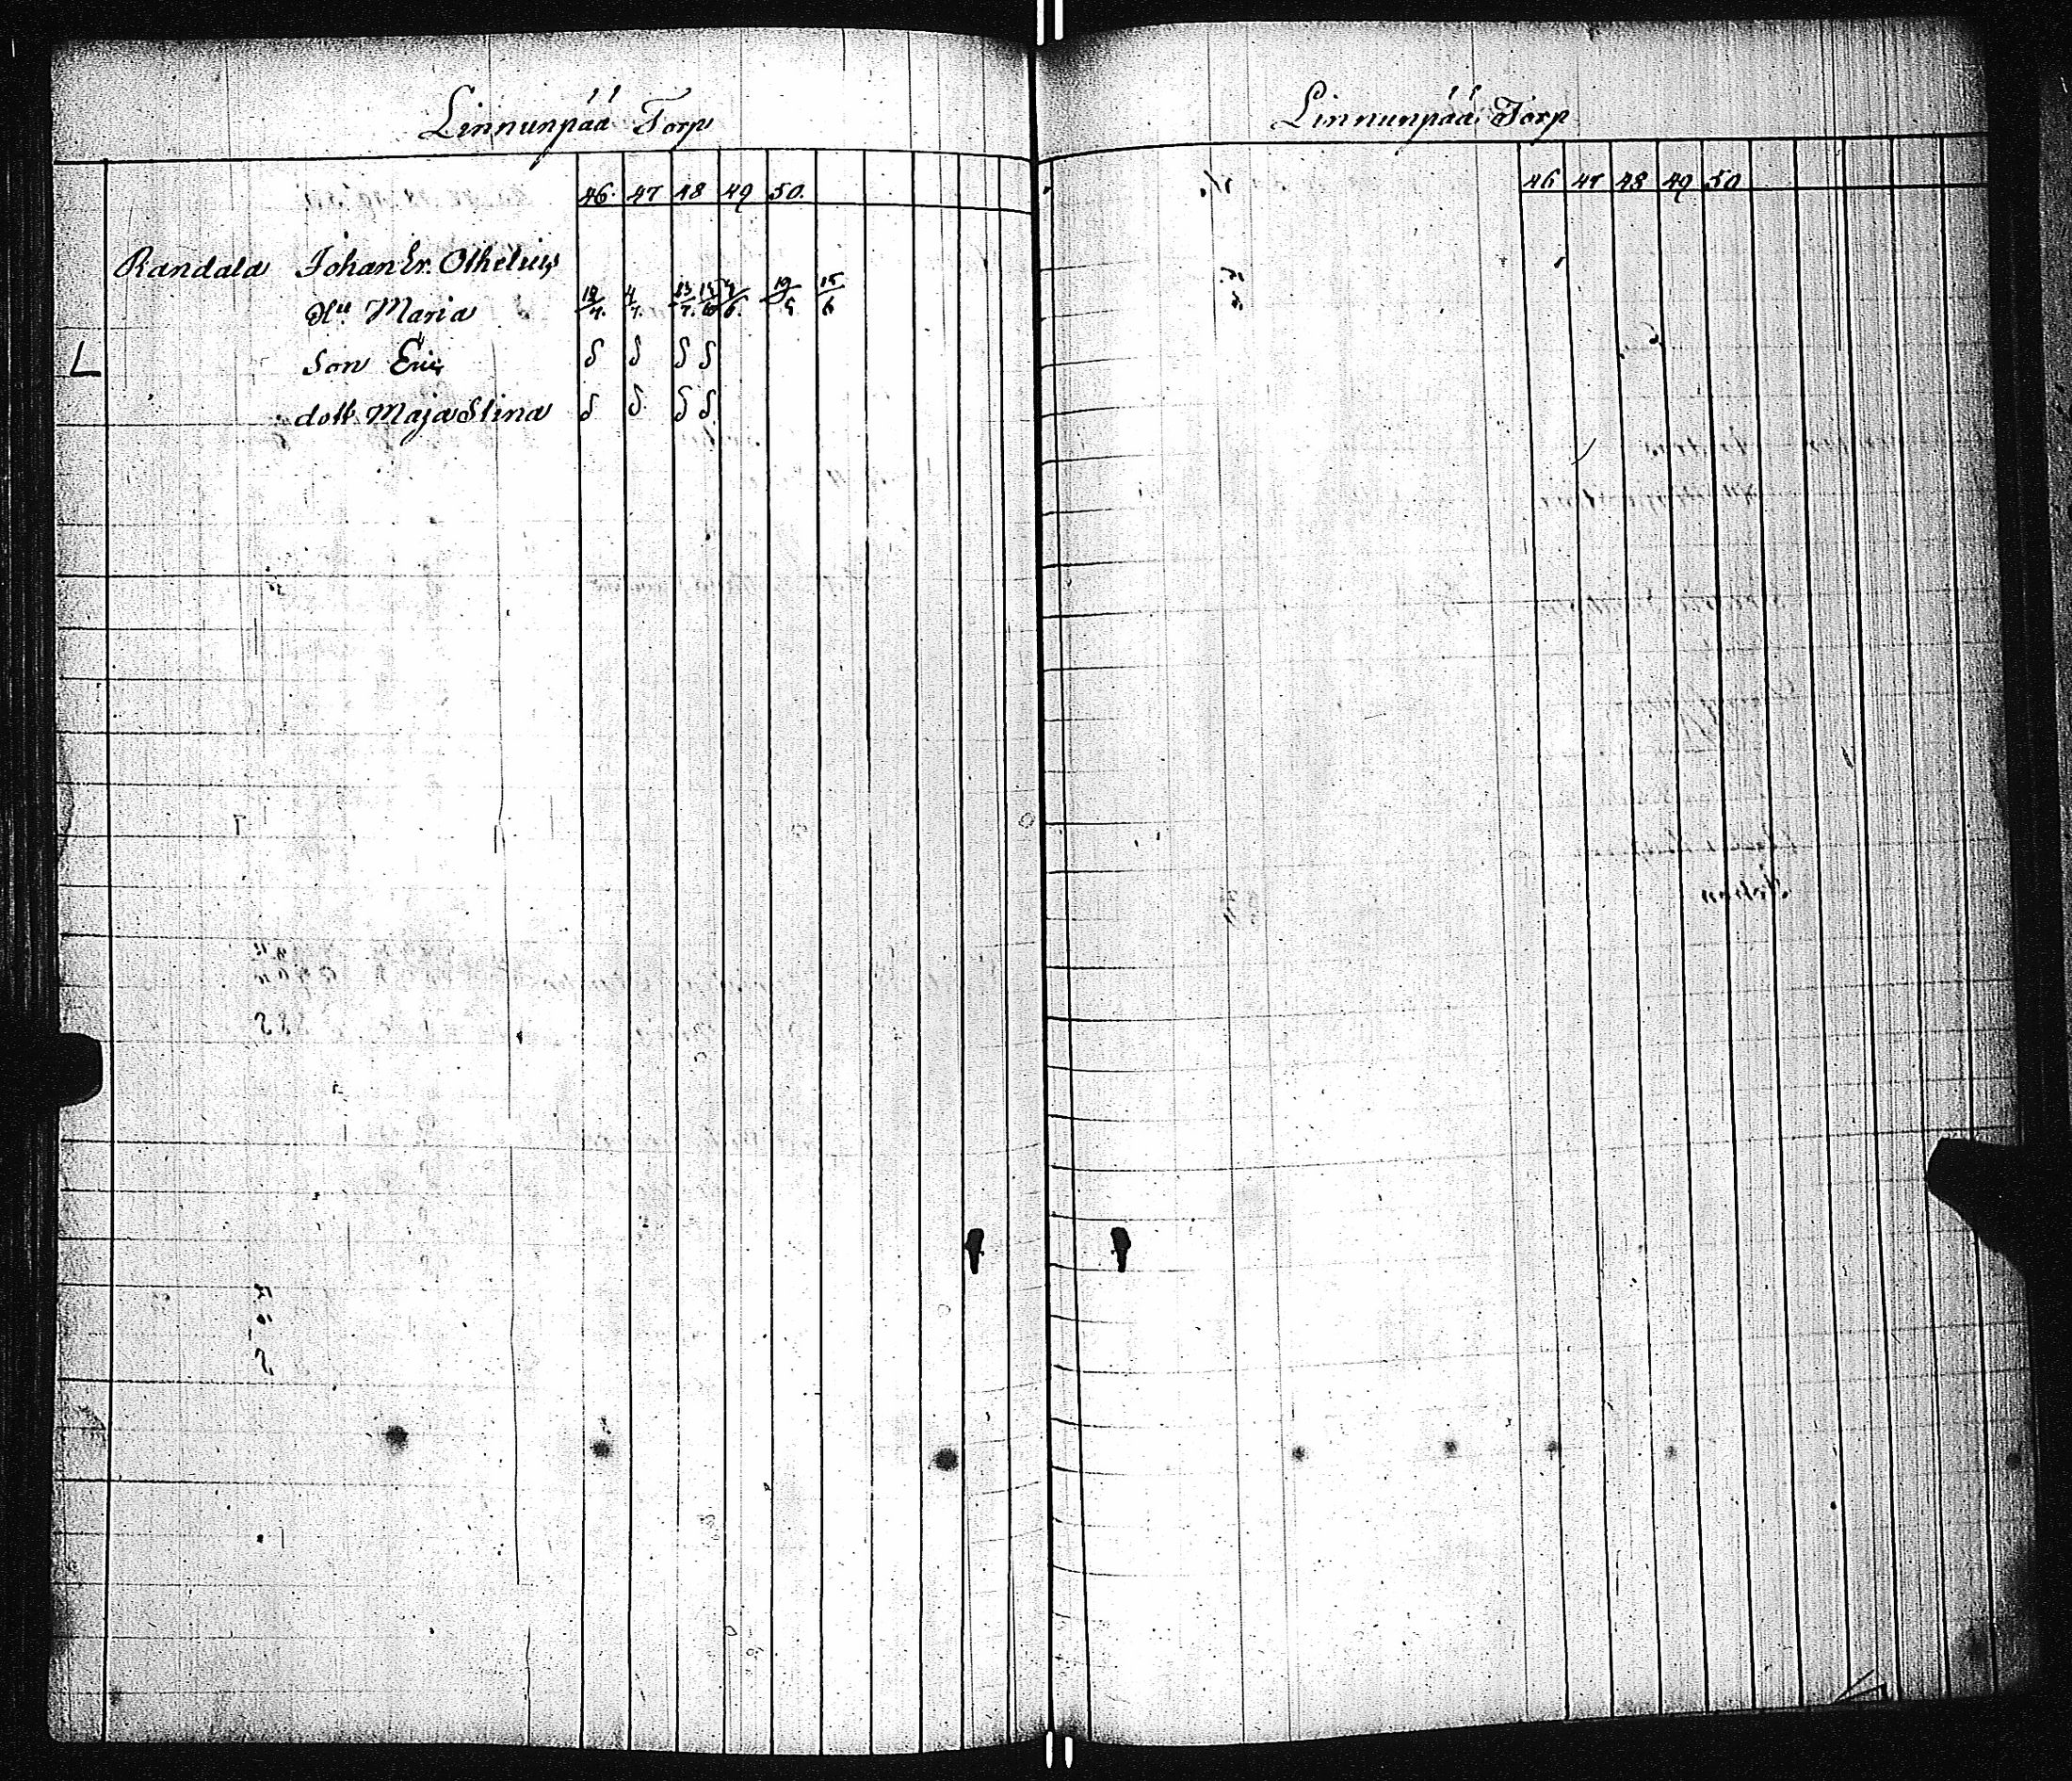 Linnunpää Torp
46. 47 48 49 50.
Randala Johan Er. Othelius
Hu. Maria 12/4. 4/7. 13/7. 19/5 15/6
L Son Eric S S S S
dott. Maja Stina S S S S
Linnunpää Torp
46 47 48 49 50